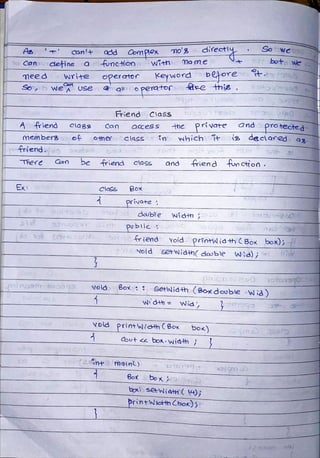 As '+' can't add Complex no's directly. So we
can define a function with name + but we
need write operator keyword before it.
So, we can use a operator like this.
Friend Class
A friend class can access the private and protected
members of other class in which it is declared as
friend.
There can be friend class and friend function.
Ex: class Box
{
private :
double width ;
public :
friend void printWidth (Box box);
void setWidth( double wid);
}
void Box : : setWidth (Box double wid)
{
width = wid; }
void printWidth (Box box)
{
cout << box.width ; }
int main()
{
Box box ;
box. setWidth( 14);
printWidth (box);
}